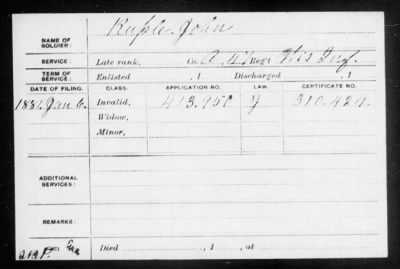 NAME OF SOLDIER: Ruple, John
SERVICE: Late rank, Co. A, 47 Reg't Wis Inf.
TERM OF SERVICE: Enlisted , 1 Discharged , 1
DATE OF FILING. CLASS. APPLICATION NO. LAW. CERTIFICATE NO.
1881, Jan 6. Invalid, 413,950 J 310.424.
Widow,
Minor,
ADDITIONAL SERVICES:
REMARKS:
Died , 1 , at